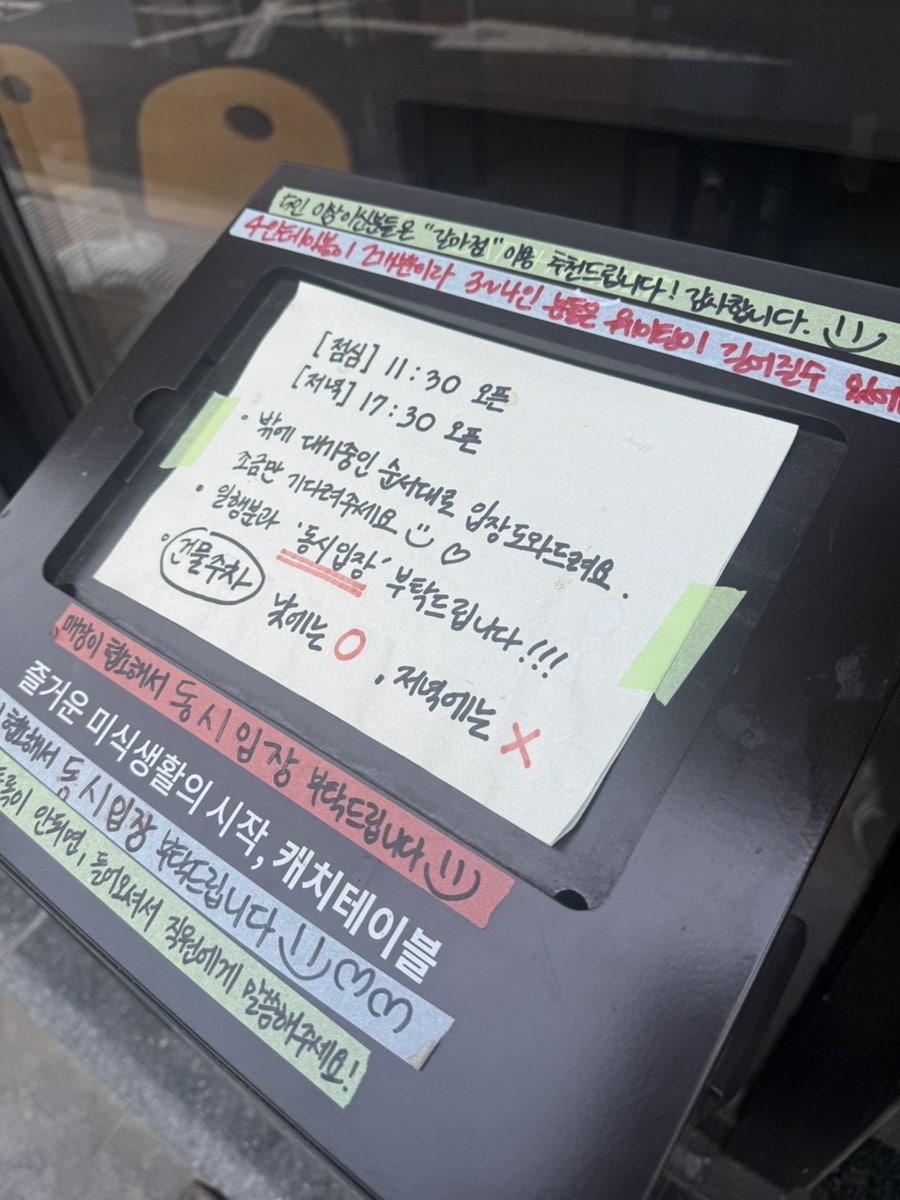 5인 이상이신분들은 "갈마점" 이용 추천드립니다! 감사합니다.
4인테이블이 2개뿐이라 3~4인 분들은 웨이팅이 길어질수 있어
[점심] 11:30 오픈
[저녁] 17:30 오픈
• 밖에 대기중인 순서대로 입장도와드려요.
조금만 기다려주세요
• 일행분과 '동시입장' 부탁드립니다!!!
• 건물주차 낮에는 O, 저녁에는 X
매장이 협소해서 동시입장 부탁드립니다
즐거운 미식생활의 시작, 캐치테이블
협소해서 동시입장 부탁드립니다
안되면, 들어오셔서 직원에게 말씀해주세요!